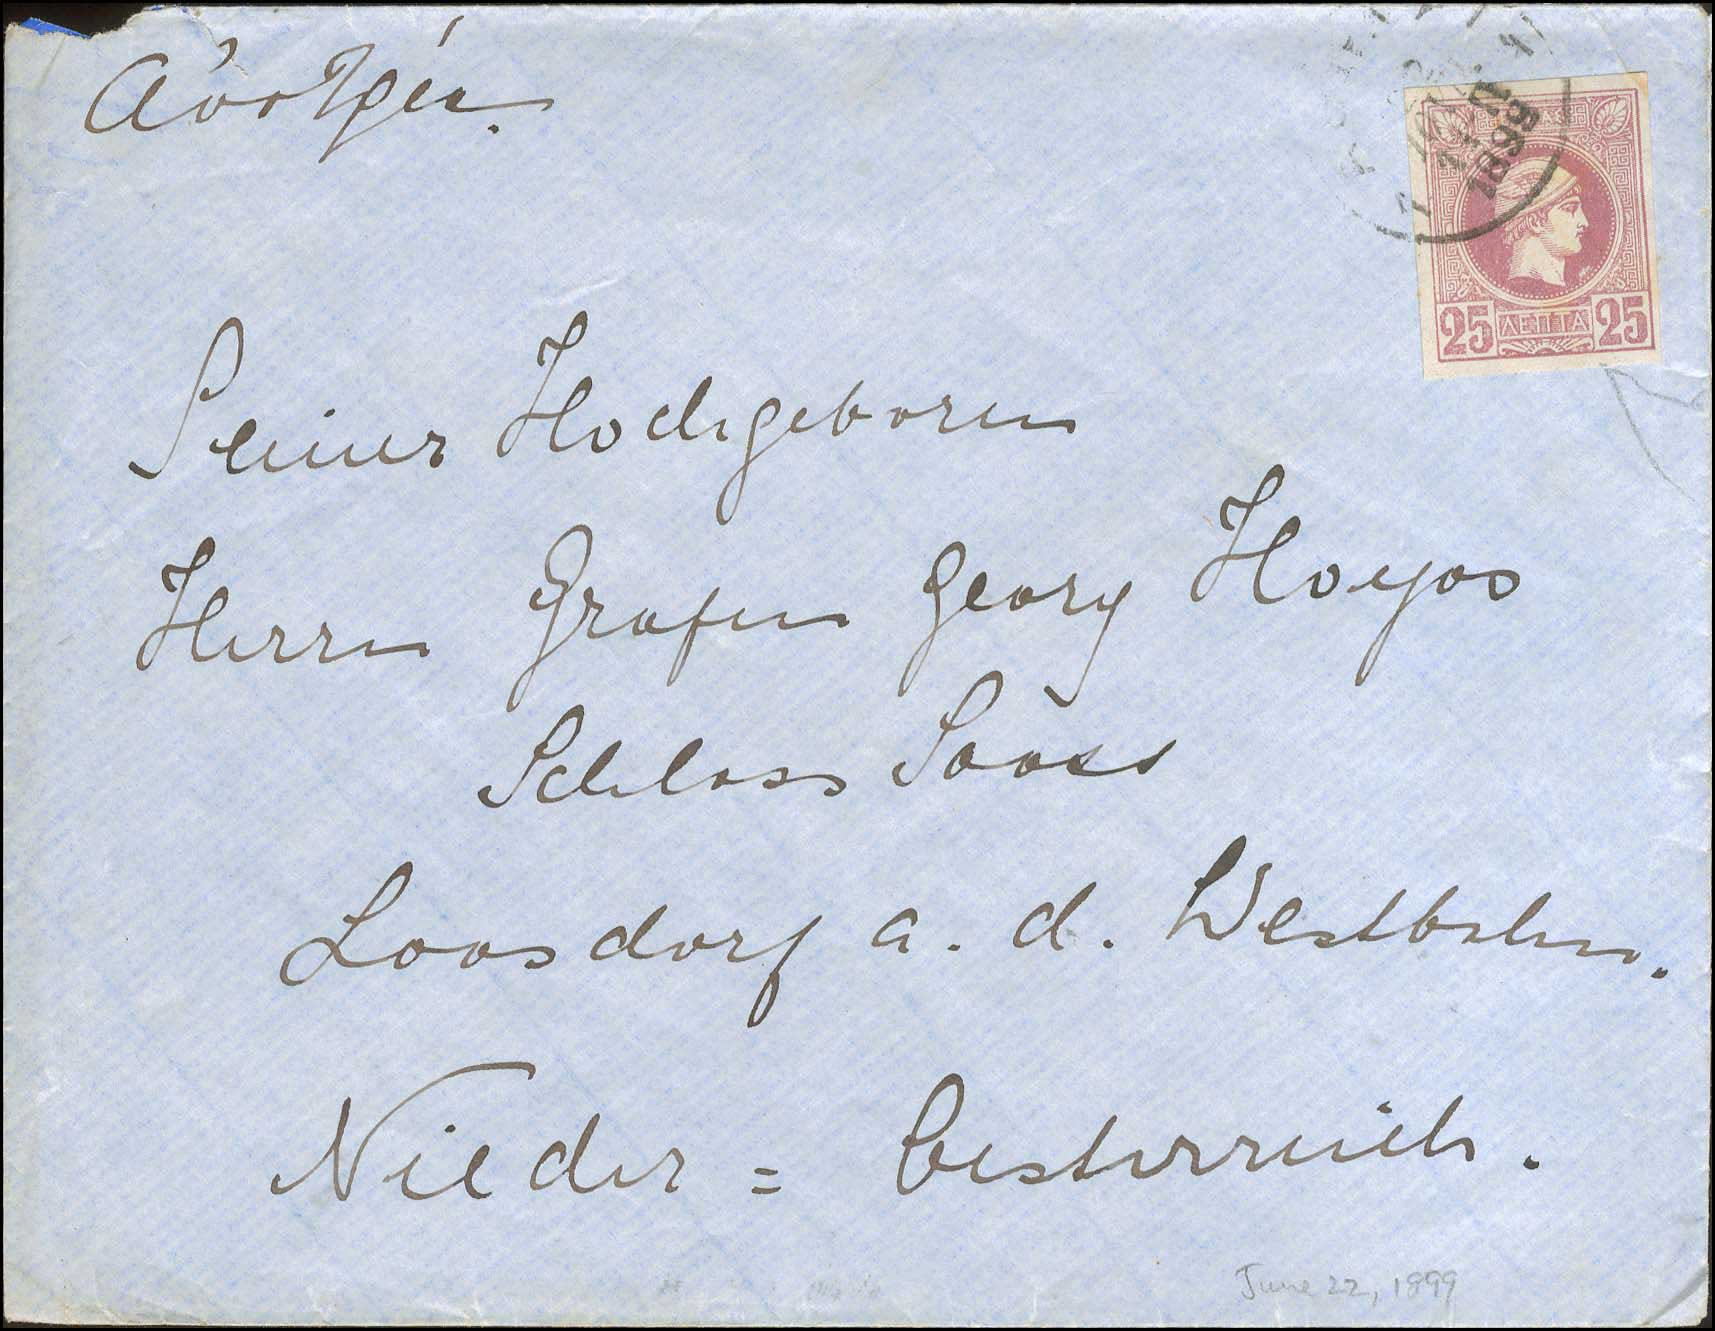 Αυστρία.
1899
25 ΛΕΠΤΑ 25
Seiner Hochgeboren
Herrn Grafen Georg Hoyos
Schloss Sooss
Loosdorf a. d. Westbahn.
Nieder = Oesterreich.
June 22, 1899